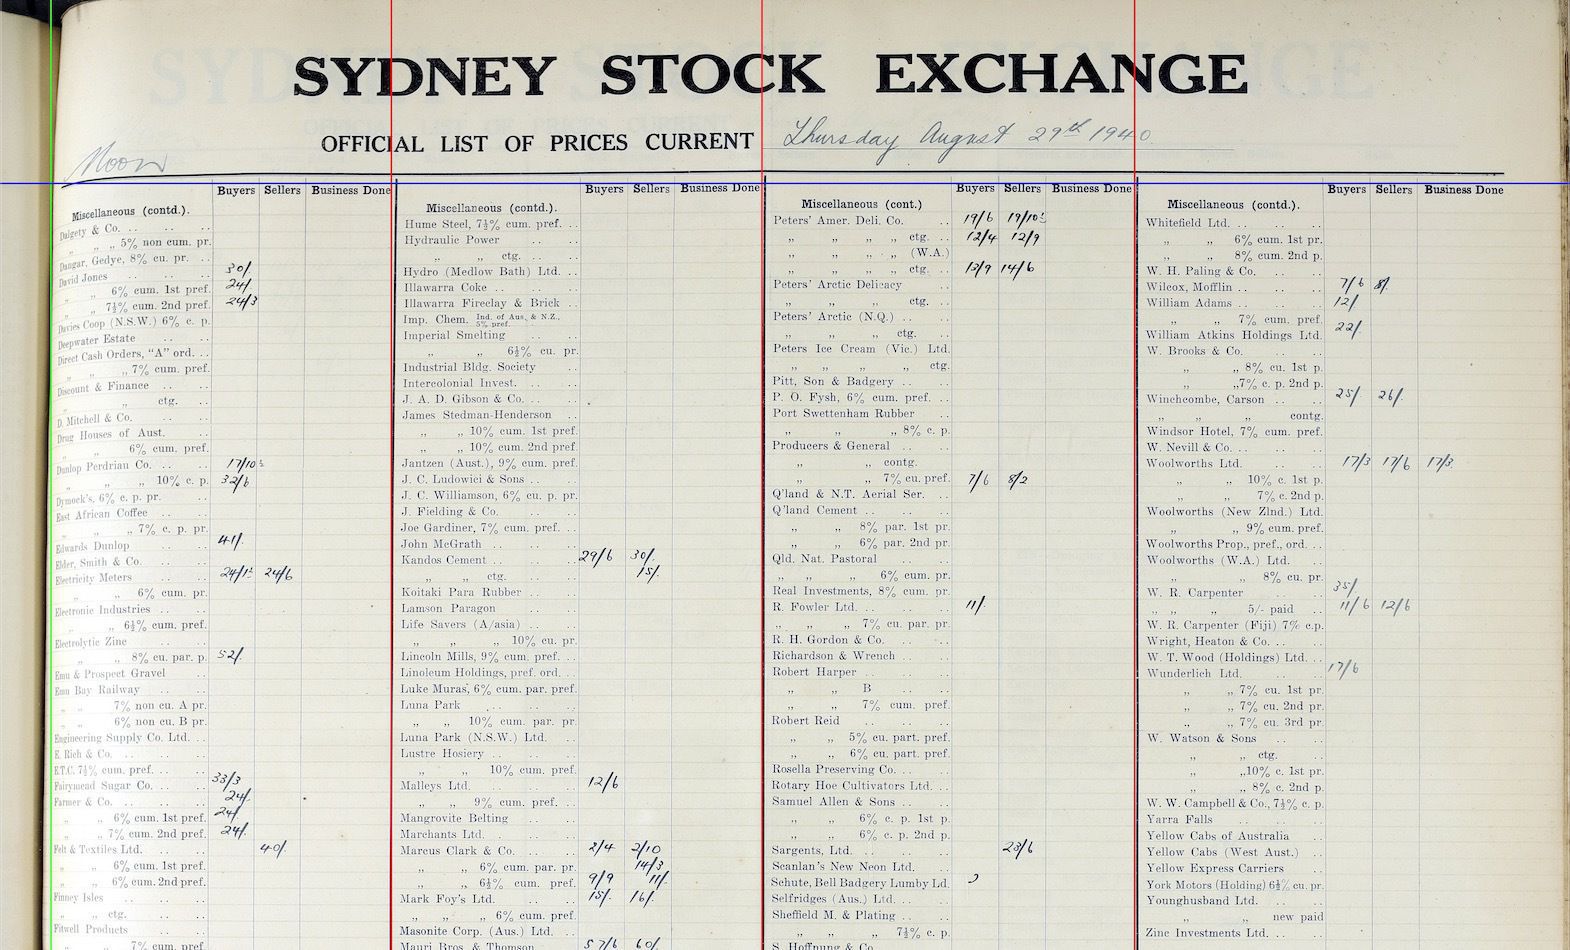 SYDNEY STOCK EXCHANGE
OFFICIAL LIST OF PRICES CURRENT Thursday August 29th 1940.
Noon
Buyers Sellers Business Done
Miscellaneous (contd.).
Dalgety & Co. .. .. ..
„ „ 5% non cum. pr.
Dangar, Gedye, 8% cu. pr. ..
David Jones .. .. .. 30/.
„ „ 6% cum. 1st pref. 24/.
„ „ 7½% cum. 2nd pref. 24/3
Davies Coop (N.S.W.) 6% c. p.
Deepwater Estate .. ..
Direct Cash Orders, "A" ord. ..
„ „ „ 7% cum. pref.
Discount & Finance .. ..
„ „ ctg. ..
D. Mitchell & Co. .. ..
Drug Houses of Aust. ..
„ „ 6% cum. pref.
Dunlop Perdriau Co. .. .. 17/10½
„ „ „ 10% c. p. 32/6
Dymock's, 6% c. p. pr. ..
East African Coffee .. ..
„ „ „ 7% c. p. pr.
Edwards Dunlop .. .. 41/.
Elder, Smith & Co. .. ..
Electricity Meters .. .. 24/1½ 24/6
„ „ 6% cum. pr.
Electronic Industries .. ..
„ „ 6½% cum. pref.
Electrolytic Zinc .. ..
„ „ 8% cu. par. p. 52/.
Emu & Prospect Gravel ..
Emu Bay Railway .. ..
„ „ 7% non cu. A pr.
„ „ 6% non cu. B pr.
Engineering Supply Co. Ltd. ..
E. Rich & Co. .. .. ..
E.T.C. 7½% cum. pref. .. ..
Fairymead Sugar Co. .. .. 33/3
Farmer & Co. .. .. .. 24/.
„ „ 6% cum. 1st pref. 24/.
„ „ 7% cum. 2nd pref. 24/.
Felt & Textiles Ltd. .. .. 40/.
„ „ 6% cum. 1st pref.
„ „ 6% cum. 2nd pref.
Finney Isles .. .. ..
„ „ ctg. .. ..
Fitwell Products .. ..
„ „ 7% cum. pref.
Buyers Sellers Business Done
Miscellaneous (contd.).
Hume Steel, 7½% cum. pref. ..
Hydraulic Power .. ..
„ „ ctg. .. ..
Hydro (Medlow Bath) Ltd. ..
Illawarra Coke .. .. ..
Illawarra Fireclay & Brick ..
Imp. Chem. Ind. of Aus. & N.Z., 5% pref. ..
Imperial Smelting .. ..
„ „ 6½% cu. pr.
Industrial Bldg. Society ..
Intercolonial Invest. .. ..
J. A. D. Gibson & Co. .. ..
James Stedman-Henderson ..
„ „ 10% cum. 1st pref.
„ „ 10% cum. 2nd pref.
Jantzen (Aust.), 9% cum. pref.
J. C. Ludowici & Sons .. ..
J. C. Williamson, 6% cu. p. pr.
J. Fielding & Co. .. ..
Joe Gardiner, 7% cum. pref. ..
John McGrath .. .. ..
Kandos Cement .. .. .. 29/6 30/.
„ „ ctg. .. .. 15/.
Koitaki Para Rubber .. ..
Lamson Paragon .. ..
Life Savers (A/asia) .. ..
„ „ „ 10% cu. pr.
Lincoln Mills, 9% cum. pref. ..
Linoleum Holdings, pref. ord. ..
Luke Muras, 6% cum. par. pref.
Luna Park .. .. ..
„ „ 10% cum. par. pr.
Luna Park (N.S.W.) Ltd. ..
Lustre Hosiery .. .. ..
„ „ 10% cum. pref.
Malleys Ltd. .. .. .. 12/6
„ „ 9% cum. pref. ..
Mangrovite Belting .. ..
Marchants Ltd. .. .. ..
Marcus Clark & Co. .. .. 2/4 2/10
„ „ 6% cum. par. pr. 14/3
„ „ 6½% cum. pref. 9/9 11/.
Mark Foy's Ltd. .. .. 15/. 16/.
„ „ „ 6% cum. pref.
Masonite Corp. (Aus.) Ltd. ..
Mauri Bros. & Thomson .. 57/6 60/.
Buyers Sellers Business Done
Miscellaneous (cont.)
Peters' Amer. Deli. Co. .. 19/6 19/10½
„ „ „ „ ctg. .. 12/4 12/9
„ „ „ „ (W.A.)
„ „ „ „ ctg. .. 13/9 14/6
Peters' Arctic Delicacy ..
„ „ „ ctg. ..
Peters' Arctic (N.Q.) .. ..
„ „ „ ctg. ..
Peters Ice Cream (Vic.) Ltd.
„ „ „ „ ctg.
Pitt, Son & Badgery .. ..
P. O. Fysh, 6% cum. pref. ..
Port Swettenham Rubber ..
„ „ „ 8% c. p.
Producers & General .. ..
„ „ contg. ..
„ „ 7% cu. pref. 7/6 8/2
Q'land & N.T. Aerial Ser. ..
Q'land Cement .. .. ..
„ „ 8% par. 1st pr.
„ „ 6% par. 2nd pr.
Qld. Nat. Pastoral .. ..
„ „ „ 6% cum. pr.
Real Investments, 8% cum. pr.
R. Fowler Ltd. .. .. .. 11/.
„ „ „ 7% cu. par. pr.
R. H. Gordon & Co. .. ..
Richardson & Wrench .. ..
Robert Harper .. .. ..
„ „ B .. ..
„ „ 7% cum. pref.
Robert Reid .. .. ..
„ „ 5% cu. part. pref.
„ „ 6% cu. part. pref.
Rosella Preserving Co. .. ..
Rotary Hoe Cultivators Ltd. ..
Samuel Allen & Sons .. ..
„ „ 6% c. p. 1st p.
„ „ 6% c. p. 2nd p.
Sargents, Ltd. .. .. .. 23/6
Scanlan's New Neon Ltd. ..
Schute, Bell Badgery Lumby Ld.
Selfridges (Aus.) Ltd. .. ..
Sheffield M. & Plating .. ..
„ „ „ 7½% c. p.
S. Hoffnung & Co.
Buyers Sellers Business Done
Miscellaneous (contd.).
Whitefield Ltd. .. .. ..
„ „ 6% cum. 1st pr.
„ „ 8% cum. 2nd p.
W. H. Paling & Co. .. ..
Wilcox, Mofflin .. .. .. 7/6 8/.
William Adams .. .. .. 12/.
„ „ 7% cum. pref.
William Atkins Holdings Ltd. 22/.
W. Brooks & Co. .. ..
„ „ 8% cum. 1st p.
„ „ 7% c. p. 2nd p.
Winchcombe, Carson .. .. 25/. 26/.
„ „ „ contg.
Windsor Hotel, 7% cum. pref.
W. Nevill & Co. .. .. ..
Woolworths Ltd. .. .. 17/3 17/6 17/3.
„ „ 10% c. 1st p.
„ „ 7% c. 2nd p.
Woolworths (New Zlnd.) Ltd.
„ „ 9% cum. pref.
Woolworths Prop., pref., ord. ..
Woolworths (W.A.) Ltd. ..
„ „ 8% cu. pr.
W. R. Carpenter .. .. 35/.
„ „ „ 5/- paid .. 11/6 12/6
W. R. Carpenter (Fiji) 7% c.p.
Wright, Heaton & Co. .. ..
W. T. Wood (Holdings) Ltd. ..
Wunderlich Ltd. .. .. 17/6
„ „ 7% cu. 1st pr.
„ „ 7% cu. 2nd pr.
„ „ 7% cu. 3rd pr.
W. Watson & Sons .. ..
„ „ ctg. ..
„ „ 10% c. 1st pr.
„ „ 8% c. 2nd p.
W. W. Campbell & Co., 7½% c. p.
Yarra Falls .. .. ..
Yellow Cabs of Australia ..
Yellow Cabs (West Aust.) ..
Yellow Express Carriers ..
York Motors (Holding) 6½% cu. pr.
Younghusband Ltd. .. ..
„ „ new paid
Zinc Investments Ltd. .. ..